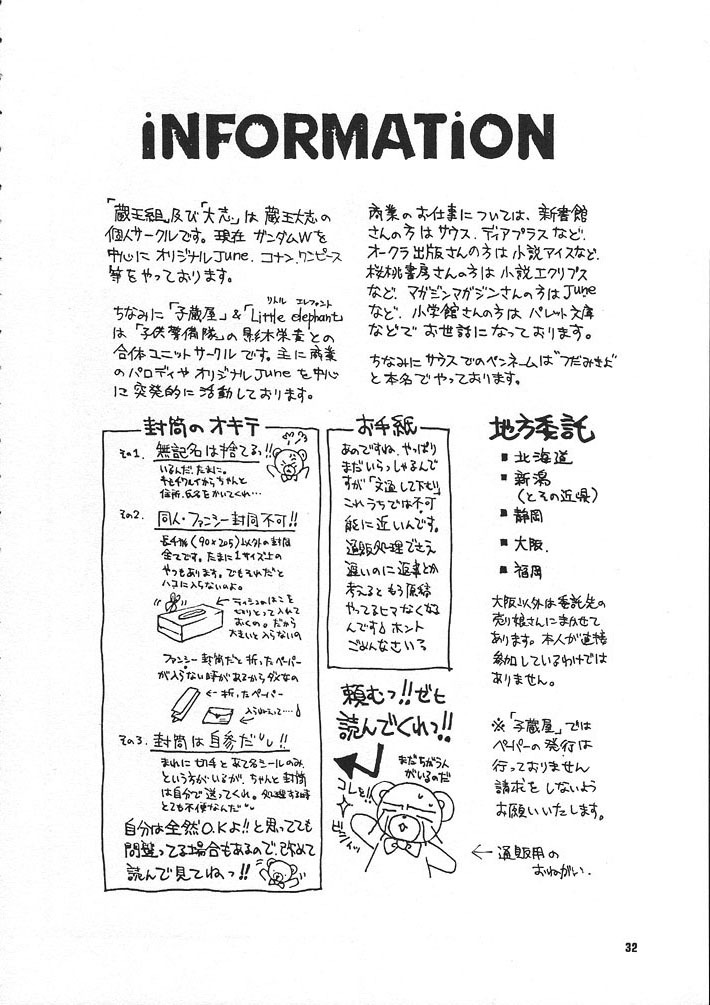 iNFORMATiON
「蔵王組」及び「大志」は 蔵王大志の
個人サークルです。現在 ガンダムWを
中心に オリジナルJune、コナン、ワンピース
等をやっております。
ちなみに「子蔵屋」&「Little elephant」
リトル エレファント
は「子供警備隊」の影木栄貴との
合体ユニットサークルです。主に商業
のパロディやオリジナルJuneを中心
に突発的に活動しております。
商業のお仕事については、新書館
さんの方は サウス、ディアプラス など、
オークラ出版さんの方は小説アイスなど、
桜桃書房さんの方は小説エクリプス
など、マガジンマガジンさんの方はJune
など、小学館さんの方は パレット文庫
などで お世話になっております。
ちなみに サウスでのペンネームは"つだみきよ"
と本名でやっております。
封筒のオキテ
その1. 無記名は捨てるっ!!
いるんだ、たまに。
キモチワルイからちゃんと
住所、氏名をかいてくれ…
その2. 同人・ファンシー封筒不可!!
長4形(90×205)以外の封筒
全てです。たまに1サイズ上の
やつもあります。でもそれだと
ハコに入らないのよ。
← ティッシュのはこを
とって入れて
おくの。だから
大きいと入らないの
ファンシー封筒だと 折ったペーパー
が入らない時があるからダメなの
← 折ったペーパー
その3. 封筒は自参だ!!
まれに 切手と あて名シールのみ、
という方がいるが、ちゃんと封筒
は自分で送ってくれ。処理する時
とても不便なんだ
自分は全然O.Kよ!!と思ってても
間違ってる場合もあるので、改めて
読んで見てねっ!!
お手紙
あのですね、やっぱり
まだいらっしゃるんで
すが「文通して下さい」
これうちでは不可
能に近いんです。
通販処理でさえ
遅いのに返事とか
考えると もう原稿
やってるヒマなくなる
んです♪ ホント
ごめんなさいる
頼むっ!!ゼヒ
読んでくれっ!!
まだちがう人
がいるのだ
コレを!!
ビシィッ
地方委託
■ 北海道
■ 新潟
(とその近県)
■ 静岡
■ 大阪
■ 福岡
大阪以外は委託先の
売り娘さんにまかせて
あります。本人が直接
参加しているわけでは
ありません。
※「子蔵屋」では
ペーパーの発行は
行っておりません
請求をしないよう
お願いいたします。
← 通販用の
おねがい.
32